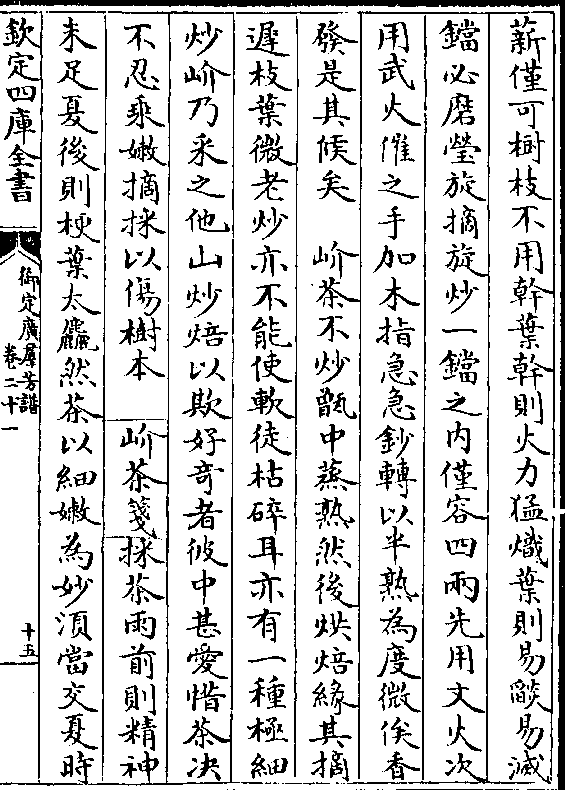 薪僅可樹枝不用幹葉幹則火力猛熾葉則易燄易滅
鐺必磨瑩旋摘旋炒一鐺之内僅容四兩先用文火次
用武火催之手加木指急急鈔轉以半熟為度微俟香
發是其候矣　岕茶不炒甑中蒸熟然後烘焙緣其摘
遲枝葉微老炒亦不能使軟徒枯碎耳亦有一種極細
炒岕乃采之他山炒焙以欺好奇者彼中甚愛惜茶决
不忍乘嫩摘採以傷樹本　岕茶箋採茶雨前則精神
未足夏後則梗葉太麤然茶以細嫩為妙湏當交夏時
欽定四庫全書
御定廣羣芳譜
卷二十一
十五